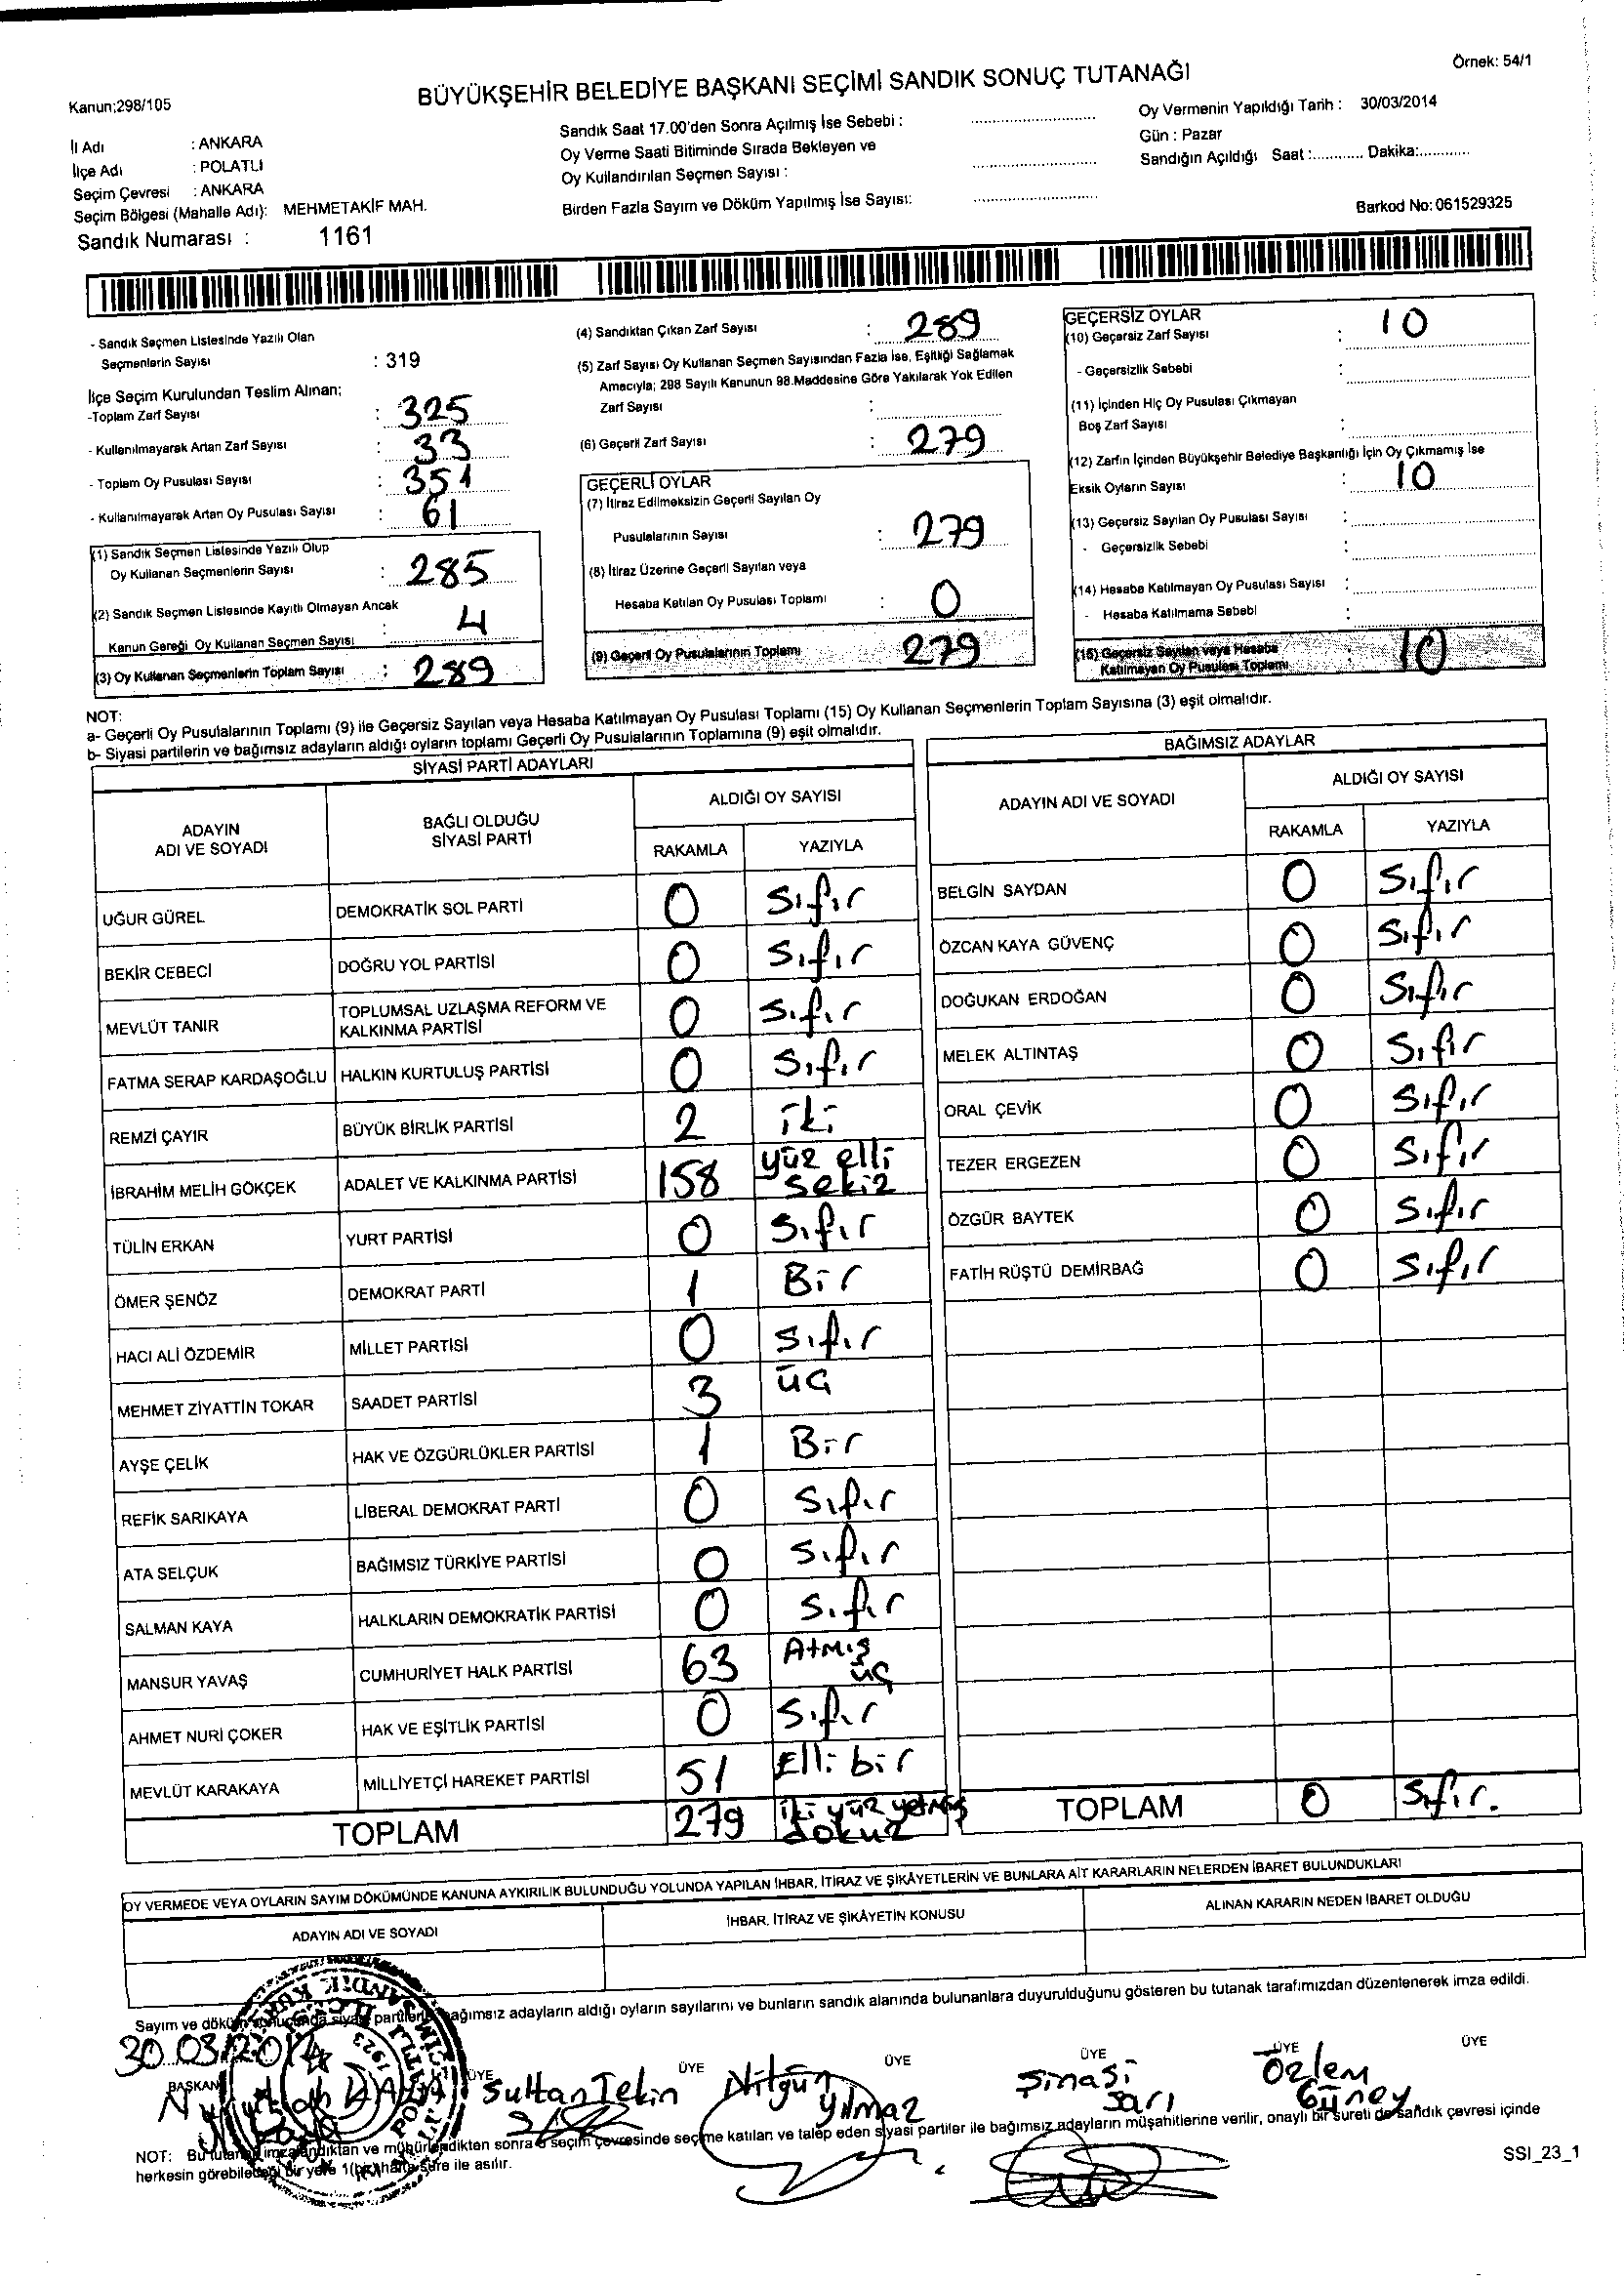 Örnek: 54/1
BÜYÜKŞEHİR BELEDİYE BAŞKANI SEÇİMİ SANDIK SONUÇ TUTANAĞI
Kanun;298/105
İl Adı : ANKARA
İlçe Adı : POLATLI
Seçim Çevresi : ANKARA
Seçim Bölgesi (Mahalle Adı): MEHMETAKİF MAH.
Sandık Numarası : 1161
Sandık Saat 17.00'den Sonra Açılmış İse Sebebi :
Oy Verme Saati Bitiminde Sırada Bekleyen ve
Oy Kullandırılan Seçmen Sayısı :
Birden Fazla Sayım ve Döküm Yapılmış İse Sayısı:
Oy Vermenin Yapıldığı Tarih : 30/03/2014
Gün : Pazar
Sandığın Açıldığı Saat :............ Dakika:............
Barkod No: 061529325
- Sandık Seçmen Listesinde Yazılı Olan
Seçmenlerin Sayısı : 319
İlçe Seçim Kurulundan Teslim Alınan;
-Toplam Zarf Sayısı : 325
- Kullanılmayarak Artan Zarf Sayısı : 33
- Toplam Oy Pusulası Sayısı : 351
- Kullanılmayarak Artan Oy Pusulası Sayısı : 61
(1) Sandık Seçmen Listesinde Yazılı Olup
Oy Kullanan Seçmenlerin Sayısı : 285
(2) Sandık Seçmen Listesinde Kayıtlı Olmayan Ancak
Kanun Gereği Oy Kullanan Seçmen Sayısı : 4
(3) Oy Kullanan Seçmenlerin Toplam Sayısı : 289
(4) Sandıktan Çıkan Zarf Sayısı : 289
(5) Zarf Sayısı Oy Kullanan Seçmen Sayısından Fazla İse, Eşitliği Sağlamak
Amacıyla; 298 Sayılı Kanunun 98.Maddesine Göre Yakılarak Yok Edilen
Zarf Sayısı :
(6) Geçerli Zarf Sayısı : 279
GEÇERLİ OYLAR
(7) İtiraz Edilmeksizin Geçerli Sayılan Oy
Pusulalarının Sayısı : 279
(8) İtiraz Üzerine Geçerli Sayılan veya
Hesaba Katılan Oy Pusulası Toplamı : 0
(9) Geçerli Oy Pusulalarının Toplamı 279
GEÇERSİZ OYLAR
(10) Geçersiz Zarf Sayısı : 10
- Geçersizlik Sebebi :
(11) İçinden Hiç Oy Pusulası Çıkmayan
Boş Zarf Sayısı :
(12) Zarfın İçinden Büyükşehir Belediye Başkanlığı İçin Oy Çıkmamış İse
Eksik Oyların Sayısı : 10
(13) Geçersiz Sayılan Oy Pusulası Sayısı :
- Geçersizlik Sebebi :
(14) Hesaba Katılmayan Oy Pusulası Sayısı :
- Hesaba Katılmama Sebebi :
(15) Geçersiz Sayılan veya Hesaba
Katılmayan Oy Pusulası Toplamı : 10
NOT:
a- Geçerli Oy Pusulalarının Toplamı (9) ile Geçersiz Sayılan veya Hesaba Katılmayan Oy Pusulası Toplamı (15) Oy Kullanan Seçmenlerin Toplam Sayısına (3) eşit olmalıdır.
b- Siyasi partilerin ve bağımsız adayların aldığı oyların toplamı Geçerli Oy Pusulalarının Toplamına (9) eşit olmalıdır.
SİYASİ PARTİ ADAYLARI
ADAYIN ADI VE SOYADI BAĞLI OLDUĞU SİYASİ PARTİ ALDIĞI OY SAYISI
RAKAMLA YAZIYLA
UĞUR GÜREL DEMOKRATİK SOL PARTİ 0 Sıfır
BEKİR CEBECİ DOĞRU YOL PARTİSİ 0 Sıfır
MEVLÜT TANIR TOPLUMSAL UZLAŞMA REFORM VE KALKINMA PARTİSİ 0 Sıfır
FATMA SERAP KARDAŞOĞLU HALKIN KURTULUŞ PARTİSİ 0 Sıfır
REMZİ ÇAYIR BÜYÜK BİRLİK PARTİSİ 2 iki
İBRAHİM MELİH GÖKÇEK ADALET VE KALKINMA PARTİSİ 158 yüz elli sekiz
TÜLİN ERKAN YURT PARTİSİ 0 Sıfır
ÖMER ŞENÖZ DEMOKRAT PARTİ 1 Bir
HACI ALİ ÖZDEMİR MİLLET PARTİSİ 0 Sıfır
MEHMET ZİYATTİN TOKAR SAADET PARTİSİ 3 üç
AYŞE ÇELİK HAK VE ÖZGÜRLÜKLER PARTİSİ 1 Bir
REFİK SARIKAYA LİBERAL DEMOKRAT PARTİ 0 Sıfır
ATA SELÇUK BAĞIMSIZ TÜRKİYE PARTİSİ 0 Sıfır
SALMAN KAYA HALKLARIN DEMOKRATİK PARTİSİ 0 Sıfır
MANSUR YAVAŞ CUMHURİYET HALK PARTİSİ 63 Atmış üç
AHMET NURİ ÇOKER HAK VE EŞİTLİK PARTİSİ 0 Sıfır
MEVLÜT KARAKAYA MİLLİYETÇİ HAREKET PARTİSİ 51 Elli bir
TOPLAM 279 iki yüz yetmiş dokuz
BAĞIMSIZ ADAYLAR
ADAYIN ADI VE SOYADI ALDIĞI OY SAYISI
RAKAMLA YAZIYLA
BELGİN SAYDAN 0 Sıfır
ÖZCAN KAYA GÜVENÇ 0 Sıfır
DOĞUKAN ERDOĞAN 0 Sıfır
MELEK ALTINTAŞ 0 Sıfır
ORAL ÇEVİK 0 Sıfır
TEZER ERGEZEN 0 Sıfır
ÖZGÜR BAYTEK 0 Sıfır
FATİH RÜŞTÜ DEMİRBAĞ 0 Sıfır
TOPLAM 0 Sıfır.
OY VERMEDE VEYA OYLARIN SAYIM DÖKÜMÜNDE KANUNA AYKIRILIK BULUNDUĞU YOLUNDA YAPILAN İHBAR, İTİRAZ VE ŞİKÂYETLERİN VE BUNLARA AİT KARARLARIN NELERDEN İBARET BULUNDUKLARI
ADAYIN ADI VE SOYADI İHBAR, İTİRAZ VE ŞİKÂYETİN KONUSU ALINAN KARARIN NEDEN İBARET OLDUĞU
Sayım ve döküm sonucunda siyasi partilerle bağımsız adayların aldığı oyların sayılarını ve bunların sandık alanında bulunanlara duyurulduğunu gösteren bu tutanak tarafımızdan düzenlenerek imza edildi.
30.03.2014
BAŞKAN ÜYE ÜYE ÜYE ÜYE ÜYE ÜYE
Sultan Tekin Nilgün Yılmaz Şinasi Sarı Özlem Güney
NOT: Bu tutanak imzalandıktan ve mühürlendikten sonra o seçim çevresinde seçime katılan ve talep eden siyasi partiler ile bağımsız adayların müşahitlerine verilir, onaylı bir sureti de sandık çevresi içinde
herkesin görebileceği bir yere 1(bir) hafta süre ile asılır.
SSI_23_1